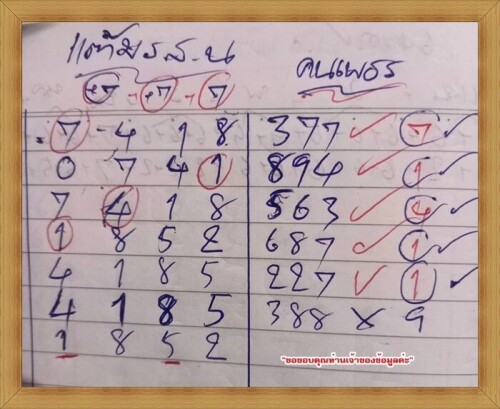 แต้มรส-น คนเพชร
+7 - +7 - 7
7 - 4 1 8 377 ✓ 7 ✓
0 7 4 1 894 ✓ 1 ✓
7 4 1 8 563 ✓ 4 ✓
1 8 5 2 687 ✓ 1 ✓
4 1 8 5 227 ✓ 1 ✓
4 1 8 5 388 x 9
1 8 5 2
"ขอขอบคุณท่านเจ้าของข้อมูลค่ะ"